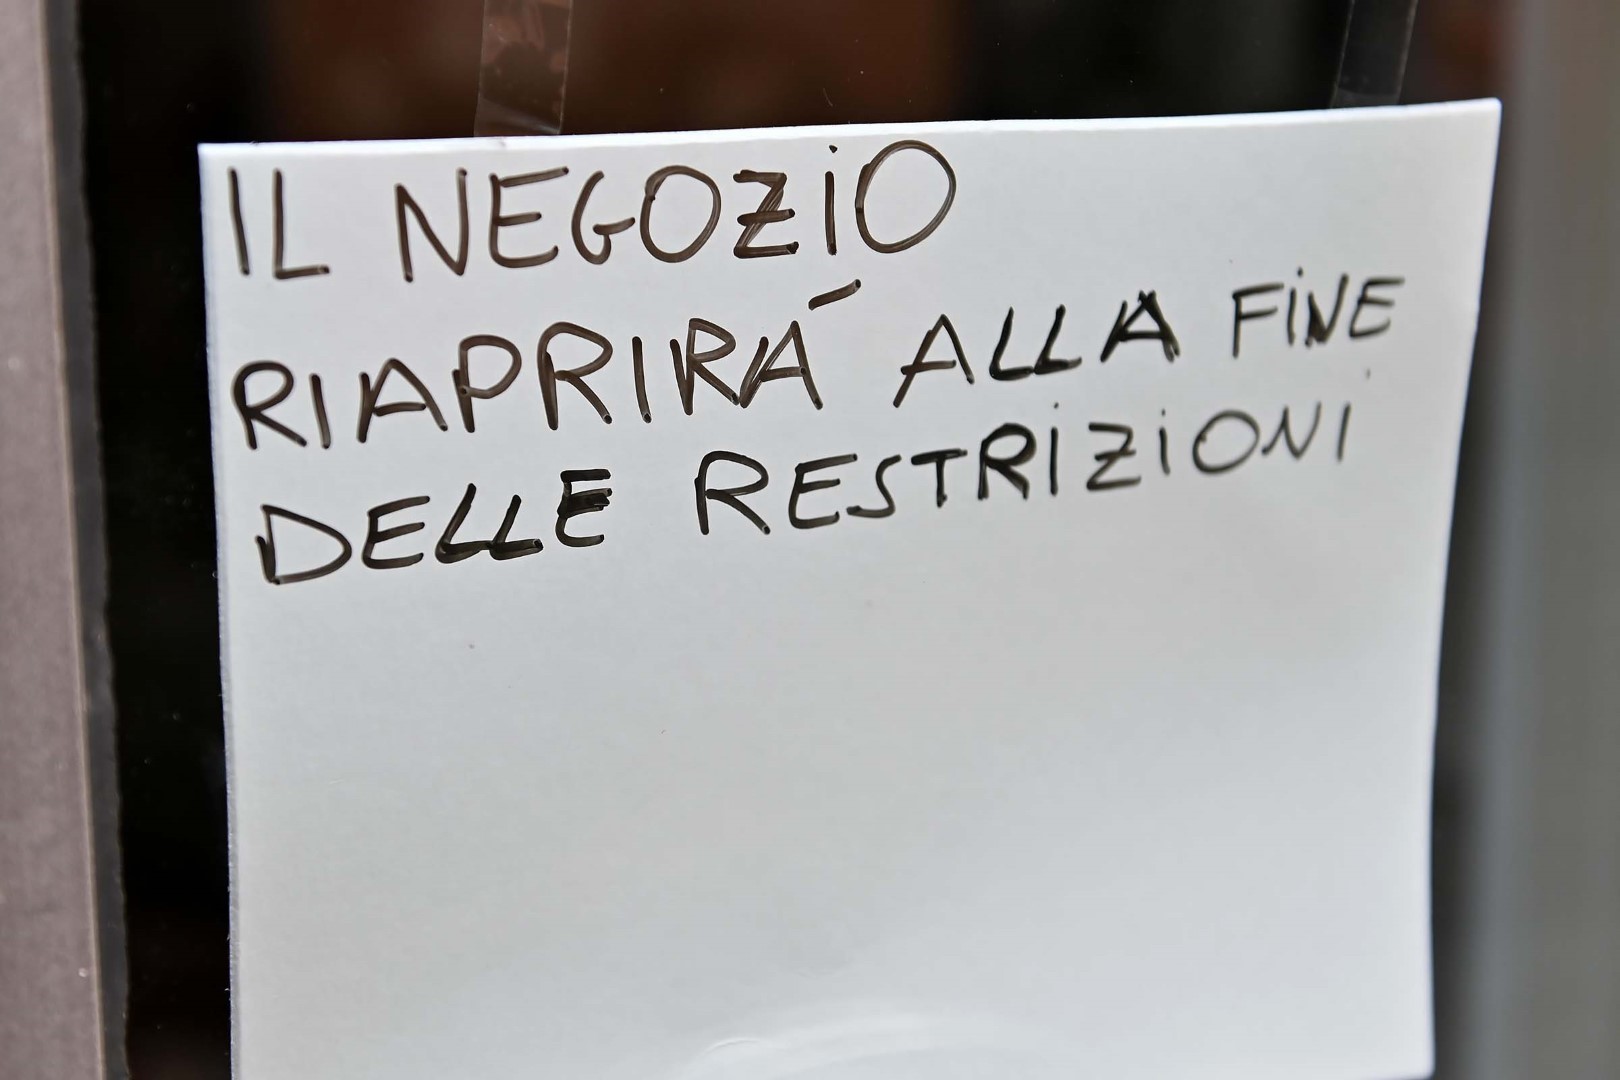 IL NEGOZIO
RIAPRIRÁ ALLA FINE
DELLE RESTRIZIONI